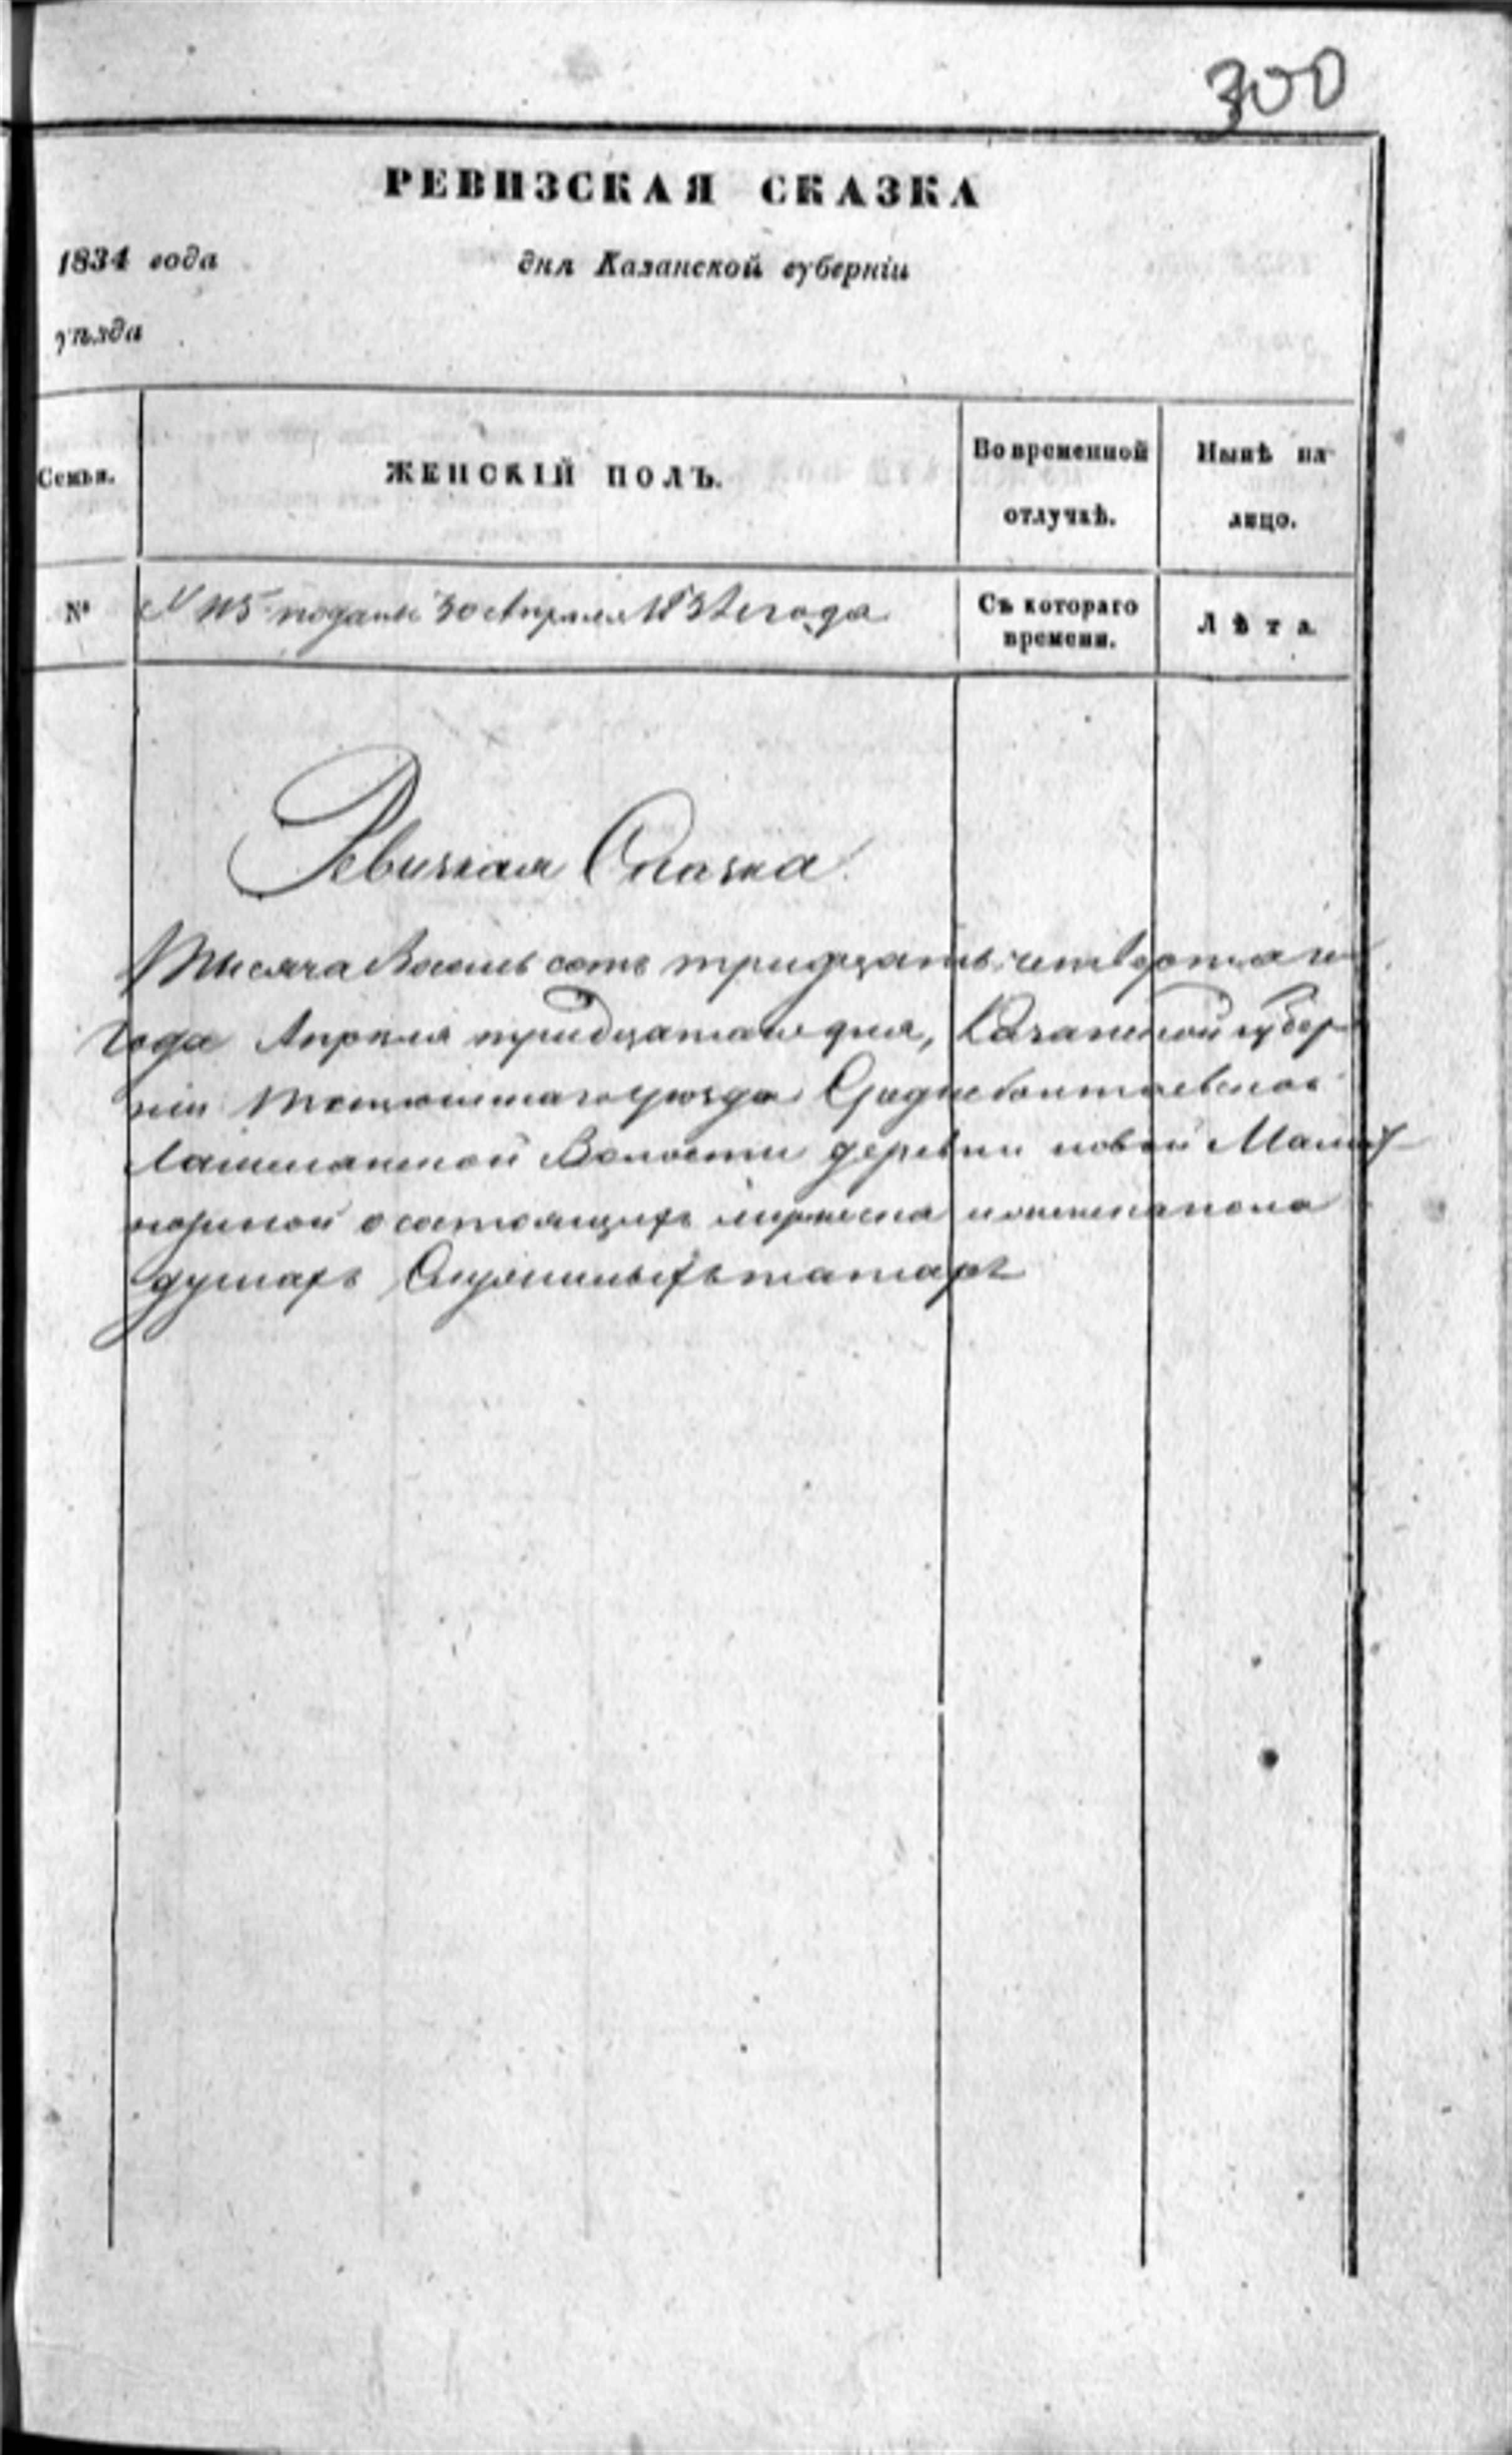 300
РЕВИЗСКАЯ СКАЗКА
1834 года дня Казанской губерніи
уѣзда
Семья. ЖЕНСКІЙ ПОЛЪ. Во временной отлучкѣ. Нынѣ на лицо.
№ N 115 подана 30 Апреля 1834 года Съ котораго времени. Лѣта.
Ревизкая Сказка
Тысяча восемь сотъ тридцать четвертаго
года Апреля тридцатаго дня, Казанской губер
ніи уѣзда
Лашманской Волости деревни новой
о состоящихъ мужеска и женска пола
душахъ Служилыхъ татаръ